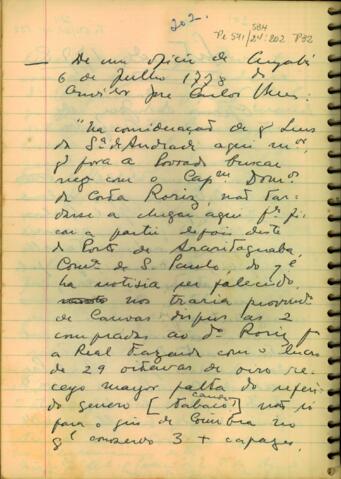 202.
584
Pi 541/24:202 P32
— De um oficio de Cuyabá
6 de Julho 1778 do
Ouvidor José Carlos
"Na consideração de q Luis
de S.ª de Andrade aqui m.or
q fora a Povoado buscar
neg.º com o Cap.m Dom.os
da Costa Roriz, não tar-
dasse a chegar aqui
a partir depois deste
do Porto de Araritaguaba,
Com.ca de S. Paulo, do q é
ha noticia ser falecido,
nos traria
de Canoas dispus as 2
compradas ao d.º Roriz p.ª
a Real Fazenda com o lucro
de 29 oitavas de ouro re-
ceyo mayor falta do referi-
do genero [canoas
tabaco?] não só
para o giro de Coimbra no
q' conservo 3 + capazes,